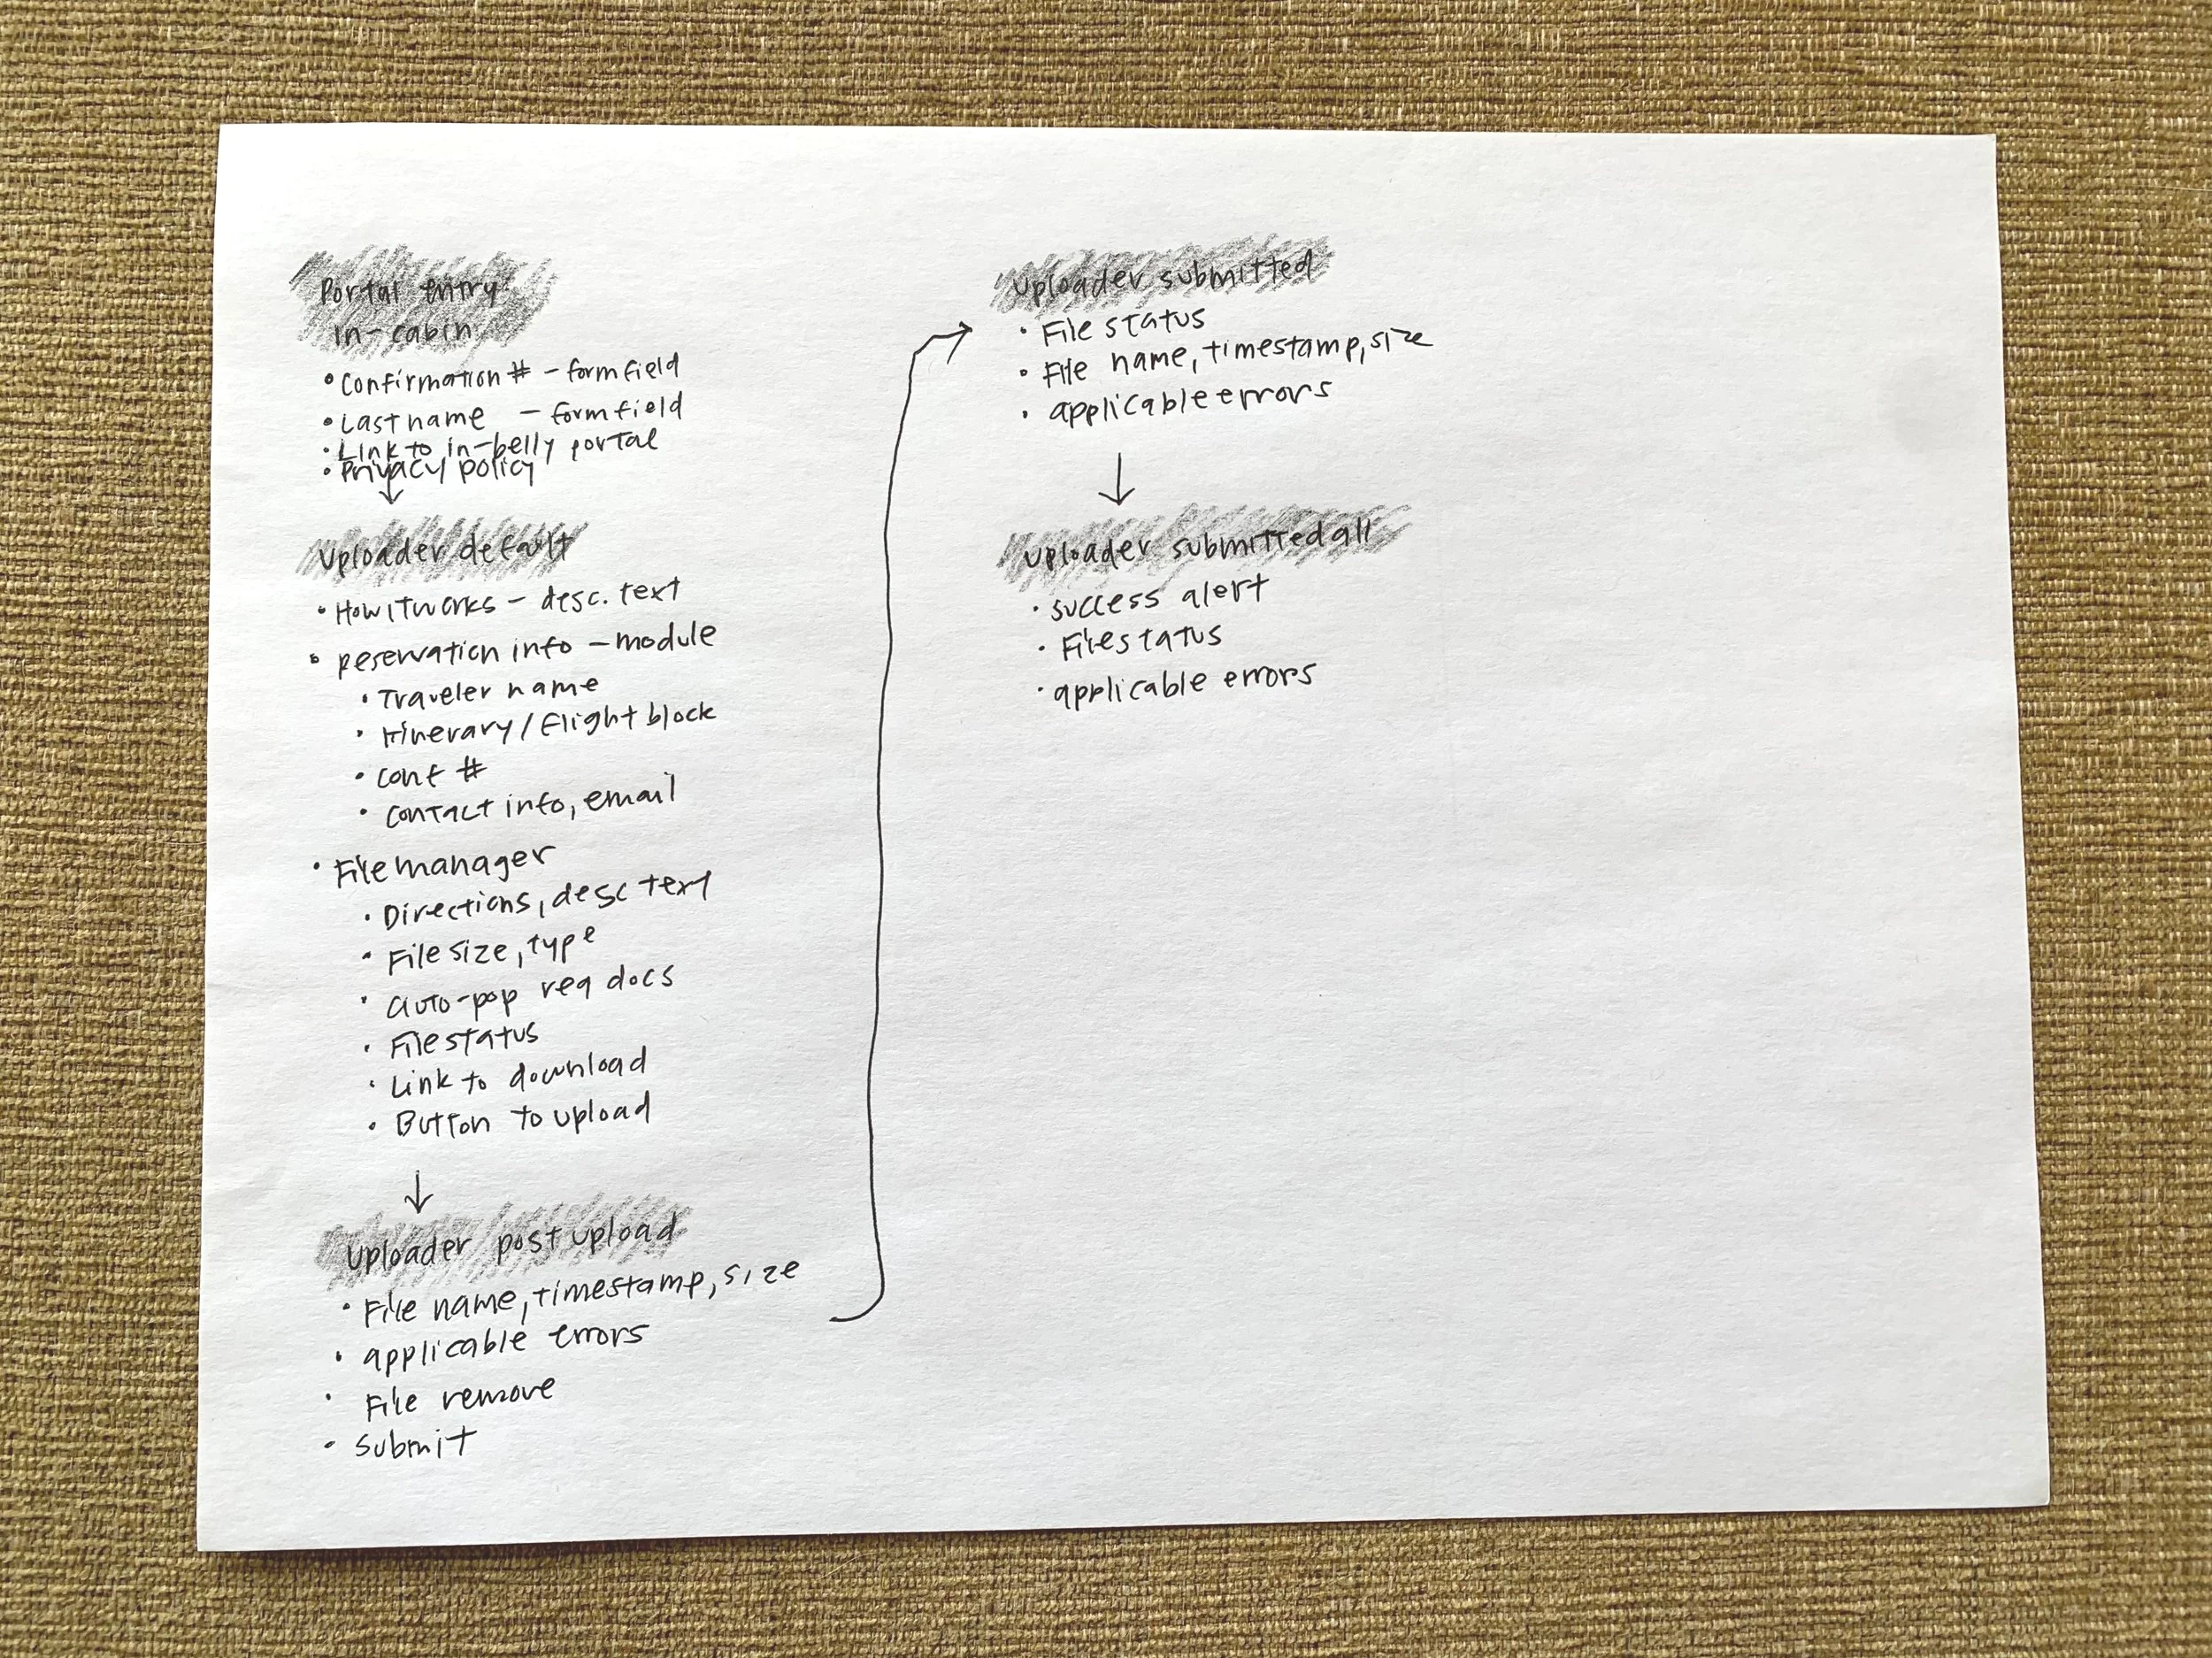 Portal entry
in-cabin
• Confirmation # - form field
• Last name - form field
• Link to in-belly portal
• Privacy policy
↓
Uploader default
• How it works - desc. text
• Reservation info - module
• Traveler name
• Itinerary / Flight block
• Conf #
• Contact info, email
• File manager
• Directions, desc text
• File size, type
• auto-pop req docs
• File status
• Link to download
• Button to upload
↓
Uploader post upload
• File name, timestamp, size
• applicable errors
• File remove
• Submit
Uploader submitted
• File status
• File name, timestamp, size
• applicable errors
↓
Uploader submitted all
• success alert
• File status
• applicable errors